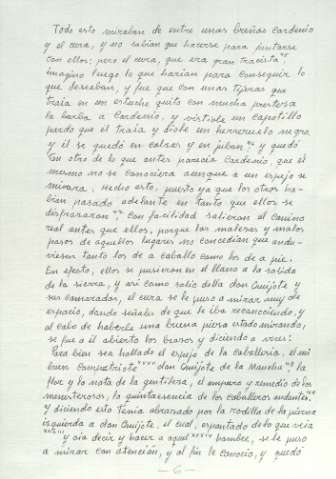 Todo esto miraban de entre unas breñas Cardenio
y el cura, y no sabían que hacerse para juntarse
con ellos; pero el cura, que era gran tracista
imaginó luego lo que harían para conseguir lo
que deseaban, y fue que con unas tijeras que
traía en un estuche quitó con mucha presteza
la barba a Cardenio, y vistióle un capotillo
pardo que él traía y dióle un herreruelo negro
y él se quedó en calzas y en jubón y quedó
tan otro de lo que antes parecía Cardenio, que él
mesmo no se conociera aunque a un espejo se
mirara. Hecho esto, puesto ya que los otros ha-
bían pasado adelante en tanto que ellos se
disfrazaron con facilidad salieron al camino
real antes que ellos, porque las malezas y malos
pasos de aquellos lugares no concedían que andu-
viesen tanto los de a caballo como los de a pie.
En efecto, ellos se pusieron en el llano a la salida
de la sierra, y así como salió della don Quijote y
sus camaradas, el cura se le puso a mirar muy de
espacio, dando señales de que le iba reconociendo, y
al cabo de haberle una buena pieza estado mirando,
se fue a él abierto los brazos y diciendo a voces:
Para bien sea hallado el espejo de la caballería, el mi
buen compatriote don Quijote de la Mancha la
flor y la nata de la gentileza, el amparo y remedio de los
menesterosos, la quintaesencia de los caballeros andantes.
y diciendo esto tenía abrazado por la rodilla de la pierna
izquierda a don Quijote, el cual, espantado de lo que veía
y oía decir y hacer a aquel hombre, se le puso
a mirar con atención, y al fin le conoció, y quedó
- 6 -